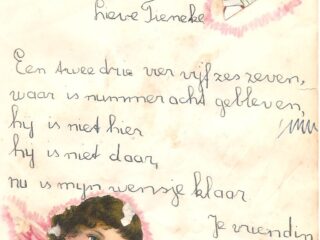 Lieve Tieneke
Een twee drie vier vijf zes zeven,
waar is nummer acht gebleven,
hij is niet hier
hij is niet daar,
nu is mijn wensje klaar
Je vriendin